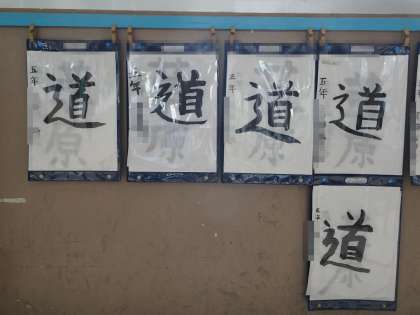 道
五年
道
五年
道
五年
道
五年
道
五年